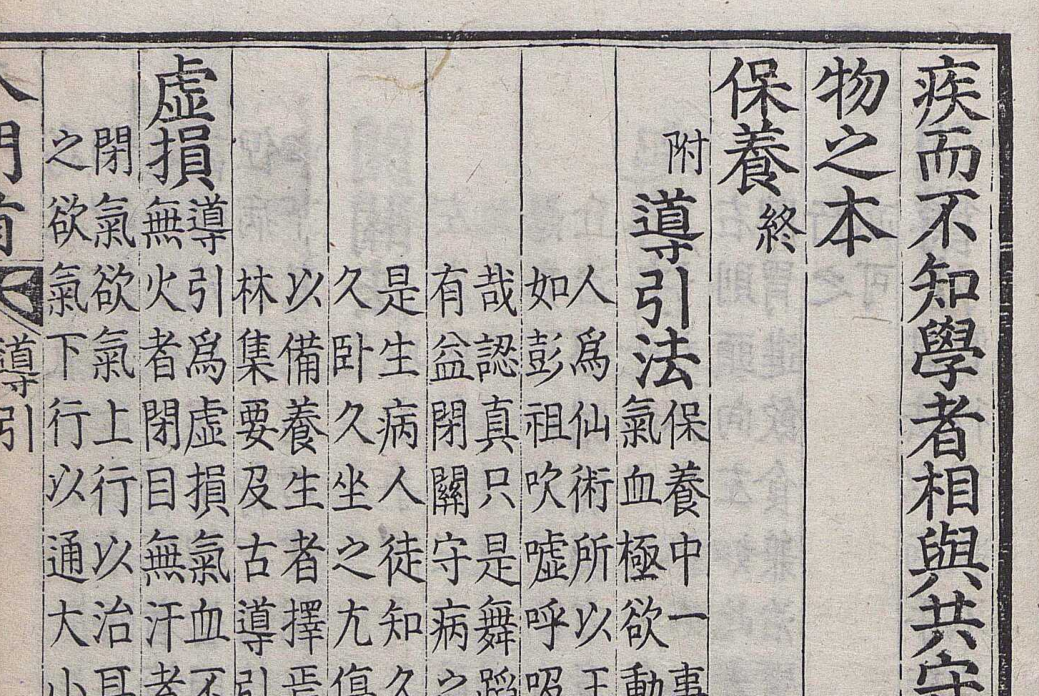 疾而不知學者相與共守
物之本
保養終
附導引法保養中一事
氣血極欲動
人爲仙術所以王
如彭祖吹噓呼吸
哉認真只是舞蹈
有益閉關守病之
是生病人徒知久
久卧久坐之尤傷
以備養生者擇焉
林集要及古導引
虛損導引爲虛損氣血不
無火者閉目無汗者
閉氣欲氣上行以治耳
之欲氣下行以通大小
導引